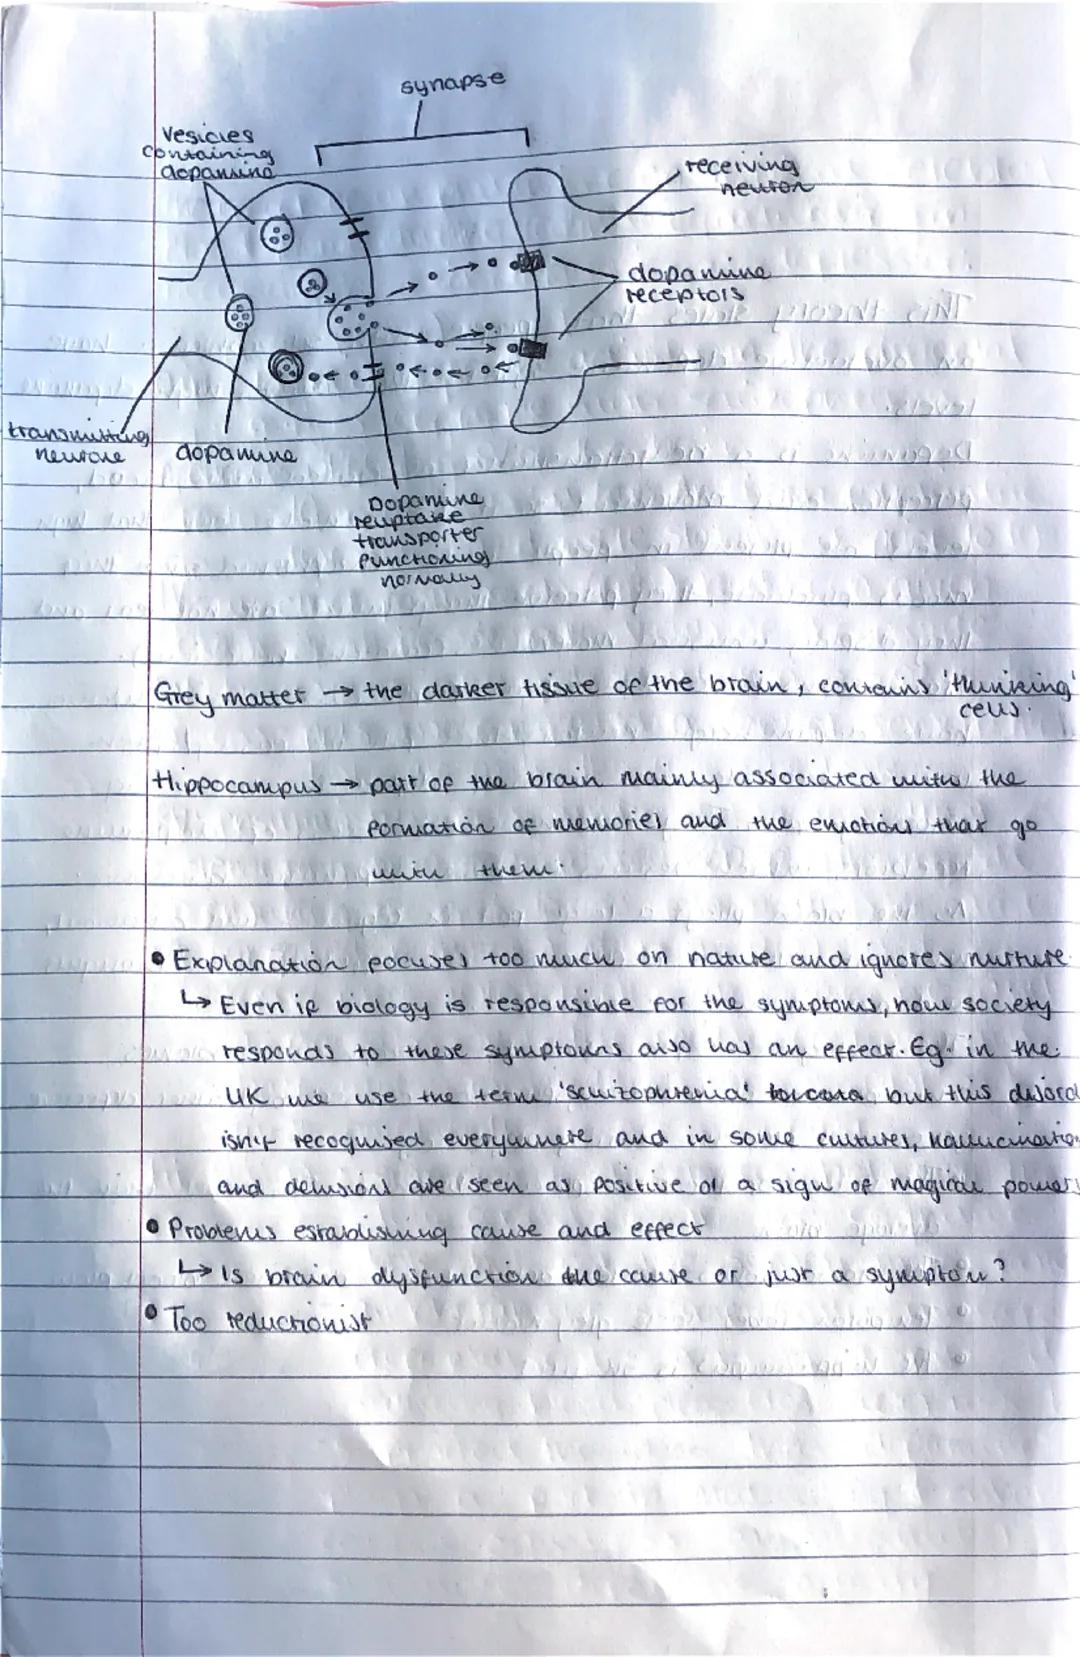 synapse
Vesicles
containing
dopamine
receiving
neuron
dopamine
receptors
transmitting
neurone
dopamine
Dopamine
reuptake
transporter
functioning
normally
Grey matter → the darker tissue of the brain, contains 'thinking'
cells.
Hippocampus → part of the brain mainly associated with the
formation of memories and the emotions that go
with them.
• Explanation focuses too much on nature and ignores nurture
↳ Even if biology is responsible for the symptoms, how society
responds to these symptoms also has an effect. Eg. in the
UK we use the term 'schizophrenia' but this disord
isn't recognised everywhere and in some cultures, hallucination
and delusions are seen as positive or a sign of magical powers
• Problems establishing cause and effect
↳ Is brain dysfunction the cause or just a symptom?
• Too reductionist